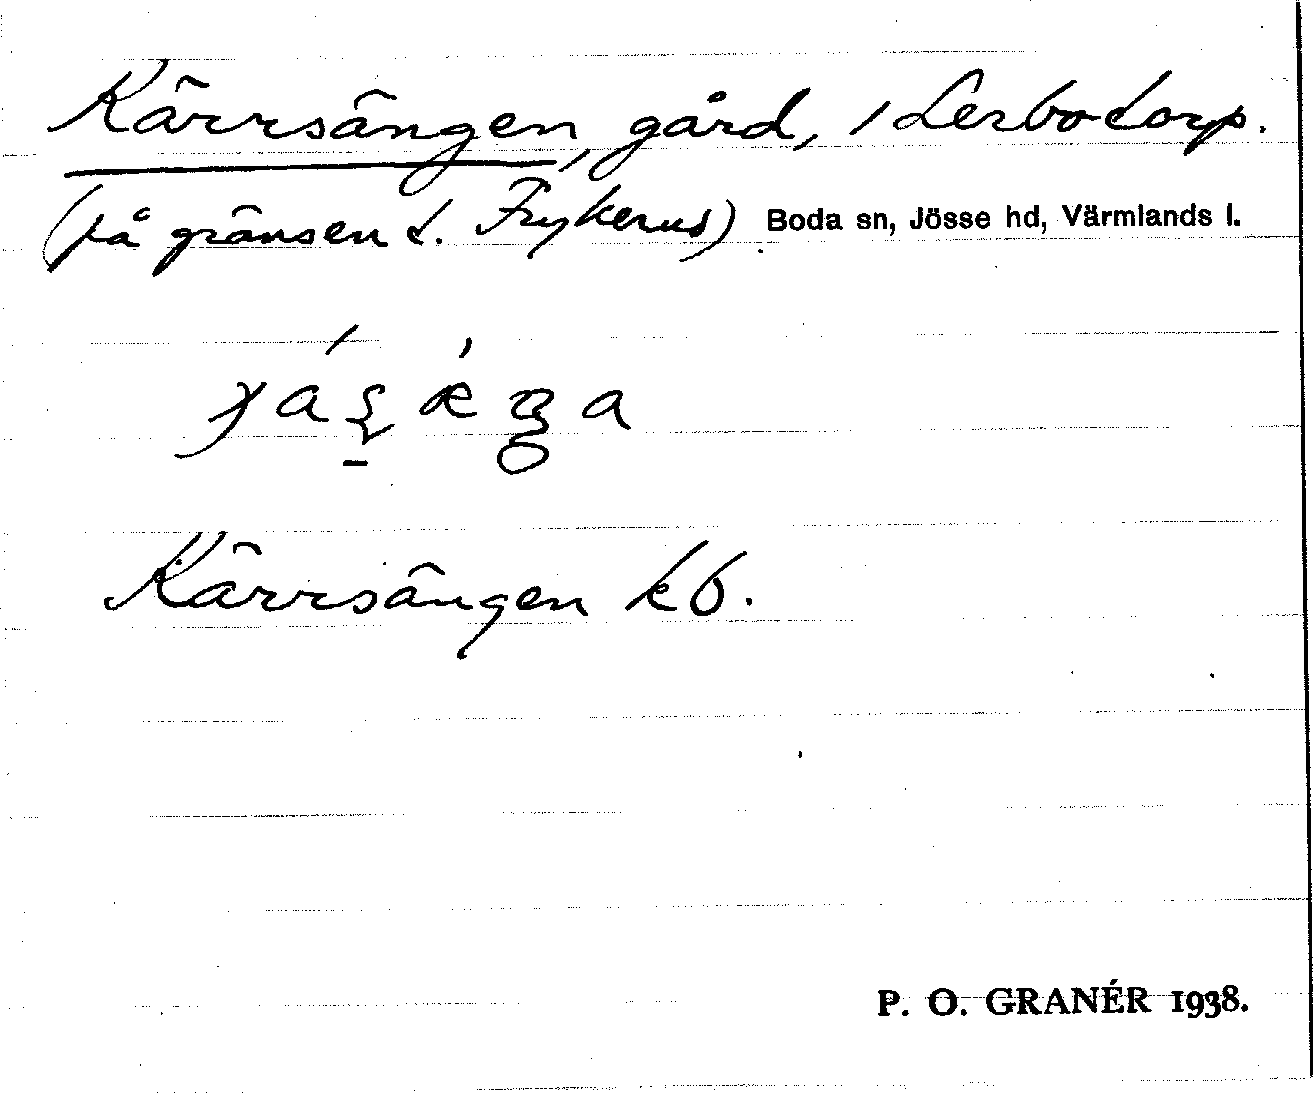 Kärrsängen, gård, / Lerbotorp.
(på gränsen t. Frykerud) Boda sn, Jösse hd, Värmlands l.
Kärrsängen kb.
P. O. GRANÉR 1938.